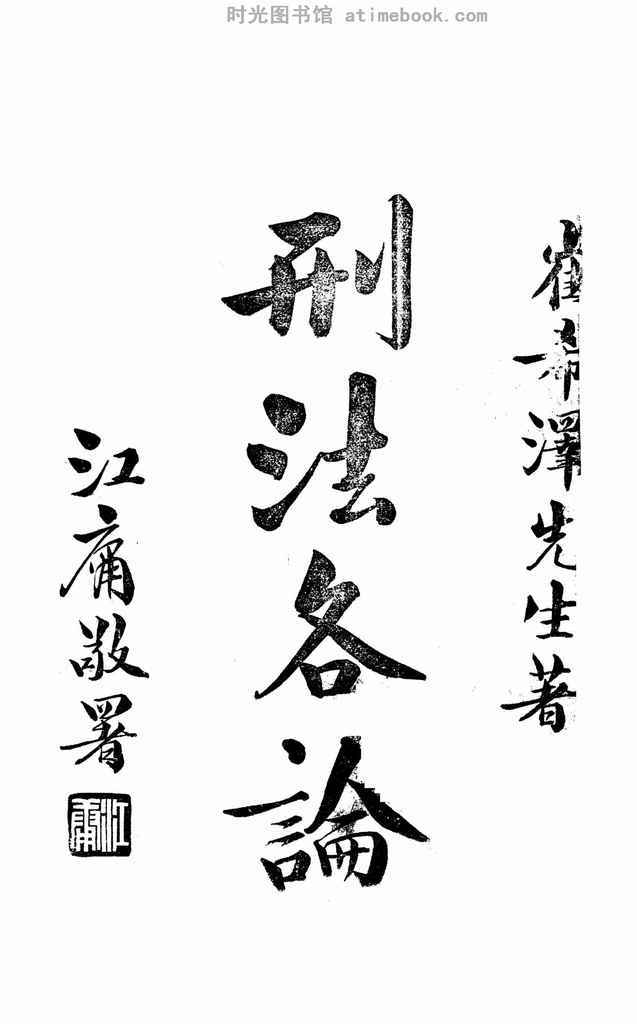 时光图书馆 atimebook.com
崔希澤先生著
刑法各論
江庸敬署
江庸